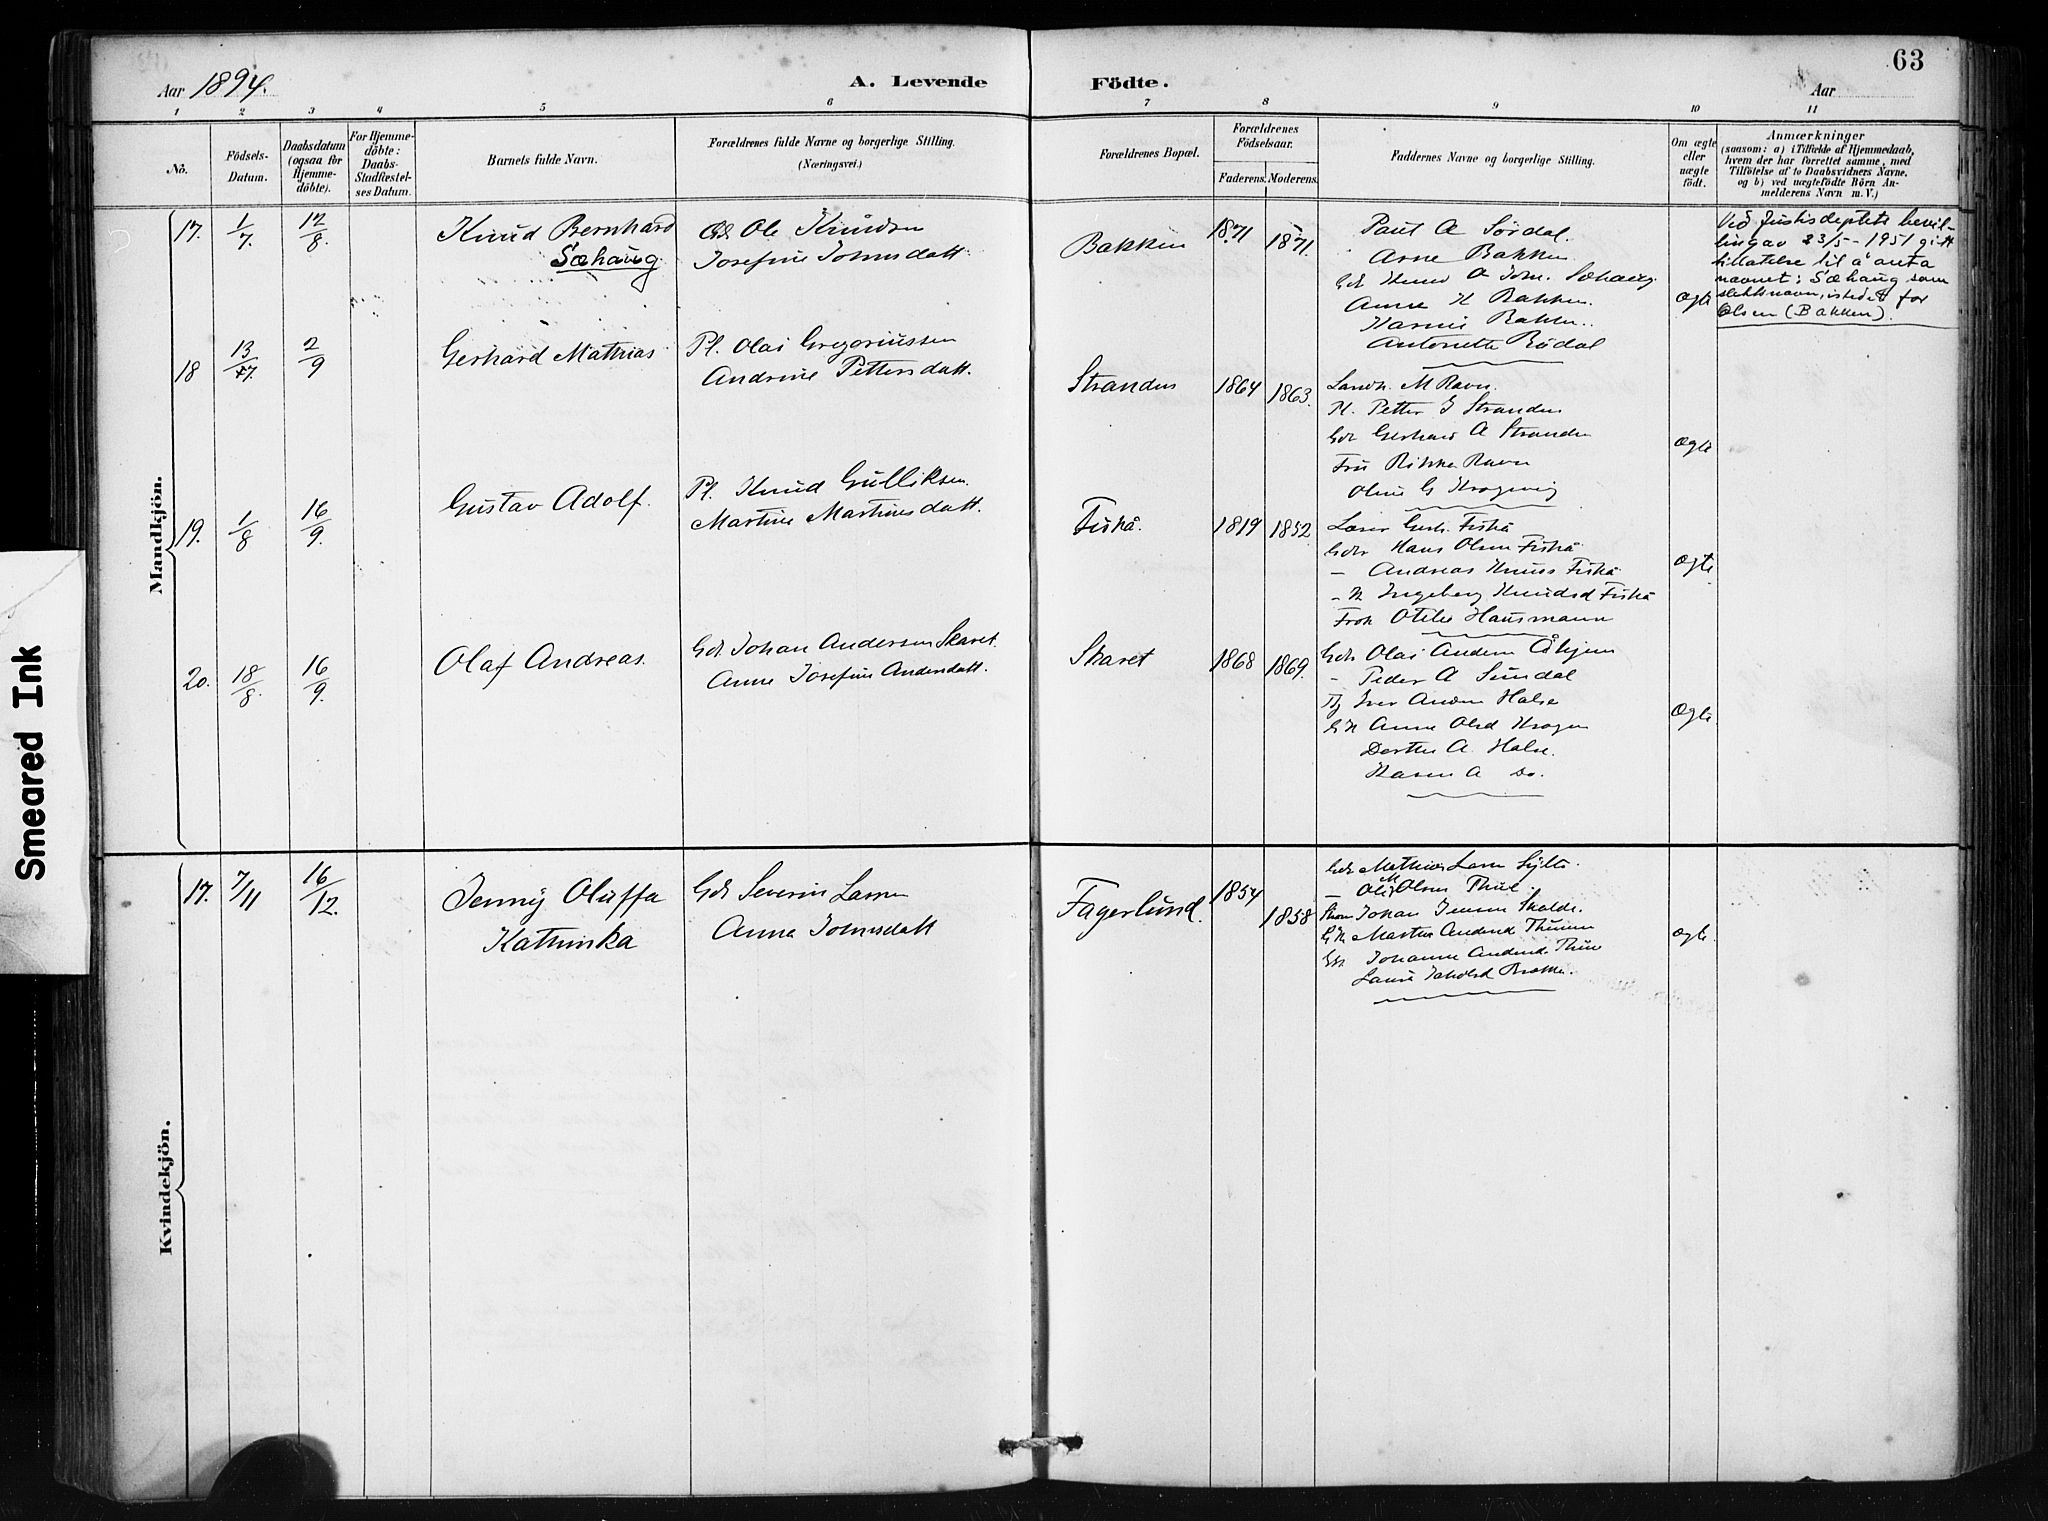 63
Aar 1894.
A. Levende Födte.
Aar
1 2 3 4 5 6 7 8 9 10 11
No.
Födsels-Datum.
Daabsdatum (ogsaa for Hjemme-döbte).
For Hjemme-döbte: Daabs-Stadfæstel-ses Datum.
Barnets fulde Navn.
Forældrenes fulde Navne og borgerlige Stilling.
(Næringsvei.)
Forældrenes Bopæl.
Forældrenes Födselsaar.
Faderens. Moderens.
Faddernes Navne og borgerlige Stilling.
Om ægte eller uægte födt.
Anmærkninger
(saasom: a) i Tilfælde af Hjemmedaab,
hvem der har forrettet samme, med
Tilföielse af to Daabsvidners Navne,
og b) ved uægtefödte Börn An-
melderens Navn m. V.)
Mandkjön.
17. 1/7. 12/8. Knud Bernhard
Sæhaug
Ole Knudsen
Josefine Johnsdatt.
Bakken 1871 1871.
Paul A Sørdal.
Arne Bakken
Knud A Sæhaug
Anne K Bakken.
Karine Bakken.
Antonette Rødal
Ægte
Ved Justisdeptets bevil-
ling av 23/5-1951 gitt
tillatelse til å anta
navnet: Sæhaug som
slektsnavn, istedet for
Olsen (Bakken).
18 13/7. 2/9 Gerhard Mathias
Pl. Olai Gregoriussen
Andrine Pettersdatt.
Stranden 1864 1863.
M Ravn.
Pl. Petter J Stranden
Gdr Gerhard A Stranden
Fru Rikke Ravn
Oline G Krogsvig
Ægte
19. 1/8 16/9. Gustav Adolf.
Pl. Knud Gulliksen
Martine Martinsdatt.
Fiskå. 1819 1852
Lærer Fiskå
Gdr Hans Olsen Fiskå
- Andreas Knuds Fiskå
- K Ingeborg Knudsd Fiskå
Frøk Otilie Hausmann
Ægte
20. 18/8. 16/9. Olaf Andreas.
Gdr. Johan Andersen Skaret.
Anne Josefine Andersdatt.
Skaret 1868 1869.
Gdr Olai Anders Åhjem
- Peder A Sundal
Iver Anders Halse
GK Anne Olsd Krogen
Dorthe A. Halse.
Karen A do.
Ægte
Kvindekjön.
17. 7/11 16/12. Jenny Oluffa
Kathinka
Gdr Severin Larsen
Anna Johnsdatt
Fagerlund. 1854 1858
Gdr Mathias Larsen Sylte.
- Ole M Olsen Thue.
Johan Jensen Skalde.
GK Marthe Andersd Thunem
Johanne Andersd. Thue
Laura Jakobsd Brekke.
Ægte.
Smeared Ink